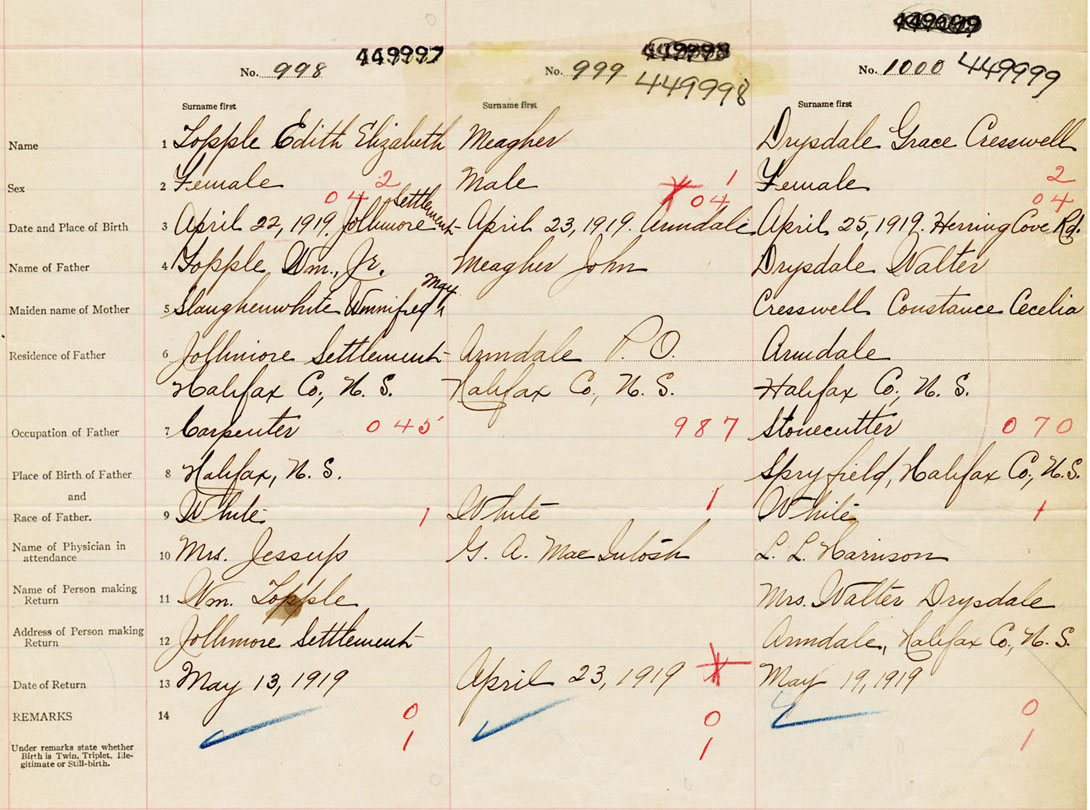 449999
449997 449998
No. 998 No. 999 No. 1000 449999
449998
Surname first Surname first Surname first
Name 1 Topple Edith Elizabeth Meagher Drysdale Grace Cresswell
Sex 2 Female 2 Male 1 Female 2
04 Settlement 04 04
Date and Place of Birth 3 April 22, 1919. Jollimore April 23, 1919. Armdale April 25, 1919. Herring Cove Rd.
Name of Father 4 Topple Wm., Jr. Meagher John Drysdale Walter
May
Maiden name of Mother 5 Slaughenwhite Winnifred Cresswell Constance Cecelia
Residence of Father 6 Jollimore Settlement Armdale P.O. Armdale
Halifax Co., N.S. Halifax Co., N.S. Halifax Co., N.S.
Occupation of Father 7 Carpenter 045 987 Stonecutter 070
Place of Birth of Father 8 Halifax, N.S. Spryfield, Halifax Co., N.S.
and
Race of Father. 9 White 1 White 1 White 1
Name of Physician in attendance 10 Mrs. Jessup G. A. MacIntosh L. L. Harrison
Name of Person making Return 11 Wm. Topple Mrs. Walter Drysdale
Address of Person making Return 12 Jollimore Settlement Armdale, Halifax Co., N.S.
Date of Return 13 May 13, 1919 April 23, 1919 May 19, 1919
REMARKS 14 0 0 0
Under remarks state whether 1 1 1
Birth is Twin, Triplet, Ille-
gitimate or Still-birth.